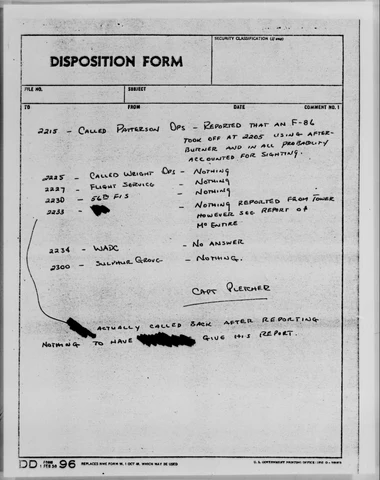 SECURITY CLASSIFICATION (If any)
DISPOSITION FORM
FILE NO. SUBJECT
TO FROM DATE COMMENT NO. 1
2215 - CALLED PATTERSON OPS - REPORTED THAT AN F-86
TOOK OFF AT 2205 USING AFTER-
BURNER AND IN ALL PROBABLITY
ACCOUNTED FOR SIGHTING.
2225 - CALLED WRIGHT OPS - NOTHING
2227 - FLIGHT SERVICE - NOTHING
2230 - 56th FIS - NOTHING
2233 - - NOTHING REPORTED FROM TOWER
HOWEVER SEE REPORT OF
McENTIRE
2234 - WADC - NO ANSWER
2300 - SULPHUR GROVE - NOTHING.
CAPT PLETCHER
ACTUALLY CALLED BACK AFTER REPORTING
NOTHING TO HAVE GIVE HIS REPORT.
DD FORM 1 FEB 50 96 REPLACES NME FORM 96, 1 OCT 48, WHICH MAY BE USED
U. S. GOVERNMENT PRINTING OFFICE